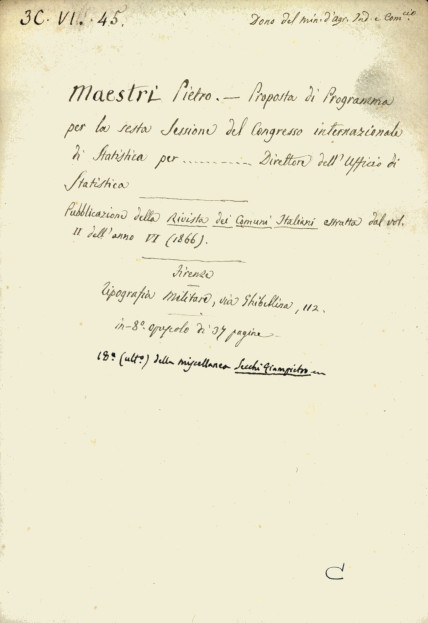 3C. VI. 45.
Dono del min. d'agr. Ind. e Com.cio
Maestri Pietro. — Proposta di Programma
per la sesta Sessione del Congresso internazionale
di Statistica per ............ Direttore dell'Ufficio di
Statistica
Pubblicazione della Rivista dei Comuni Italiani estratta dal vol.
II dell'anno VI (1866).
Firenze
Tipografia Militare, via Ghibellina, 112.
in-8.° opuscolo di 37 pagine
18.° (ult.°) della miscellanea Secchi Giampietro
C